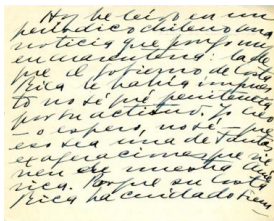 Hoy he leído en un
periódico chileno una
noticia que pongo
en cuarentena: la de
que el gobierno de Costa
Rica le había impues
to no sé qué penitencia
por tu actitud. Yo creo
o espero, no sé, que
eso sea una de tantas
exageraciones que vie
nen de nuestra Amé
rica. Porque su Costa
Rica ha cuidado bien